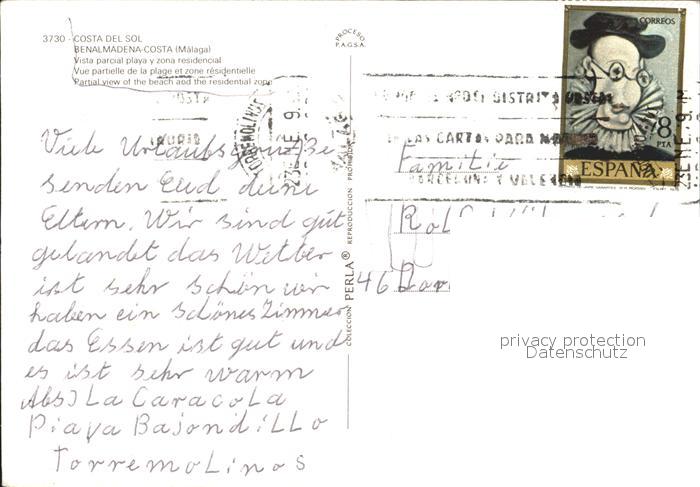 3730 - COSTA DEL SOL
BENALMADENA-COSTA (Málaga)
Vista parcial playa y zona residencial
Vue partielle de la plage et zone résidentielle
Partial view of the beach and the residential zone
PROCESO
P.A.G.S.A.
CORREOS
8
PTA
ESPAÑA
DISTRITO POSTAL
EN LAS CARTAS PARA MADRID
BARCELONA Y VALENCIA
TORREMOLINOS
Viele Urlaubsgrüße
senden Eud deine
Eltern. Wir sind gut
gelandet das Wetter
ist sehr schön wir
haben ein schönes Zimmer
das Essen ist gut und
es ist sehr warm
Abs) La Caracola
Piaya BajondiLLo
TorremoLinos
COLECCION PERLA® REPRODUCCION
Familie
46 Dor
privacy protection
Datenschutz